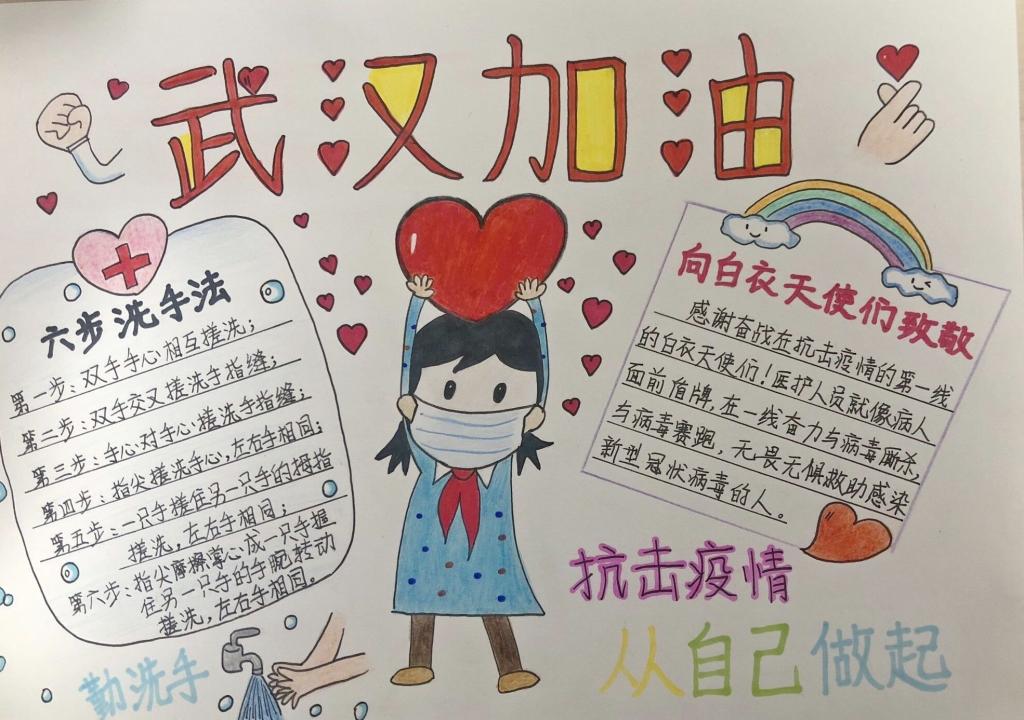 武汉加油
六步洗手法
第一步：双手手心相互搓洗；
第二步：双手交叉搓洗手指缝；
第三步：手心对手心搓洗手指缝；
第四步：指尖搓洗手心，左右手相同；
第五步：一只手搓住另一只手的拇指
搓洗，左右手相同；
第六步：指尖摩擦掌心或一只手握
住另一只手的手腕转动
搓洗，左右手相同。
勤洗手
向白衣天使们致敬
感谢奋战在抗击疫情的第一线
的白衣天使们！医护人员就像病人
面前盾牌，在一线奋力与病毒厮杀，
与病毒赛跑，无畏无惧救助感染
新型冠状病毒的人。
抗击疫情
从自己做起